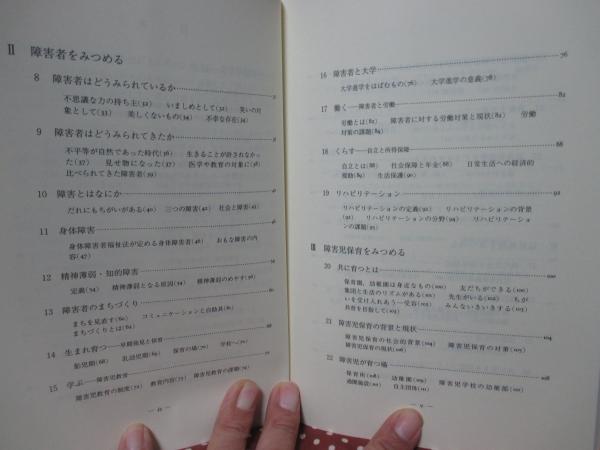 II 障害者をみつめる
8 障害者はどうみられているか
不思議な力の持ち主(32) いましめとして(32) 笑いの対
象として(33) 美しくないもの(34) 不幸な存在(34)
9 障害者はどうみられてきたか
不平等が自然であった時代(36) 生きることが許されなかっ
た(37) 見せ物になった(37) 医学や教育の対象に(38)
比べられてきた障害者(39)
10 障害とはなにか
だれにもちがいがある(40) 三つの障害(42) 社会と障害(45)
11 身体障害
身体障害者福祉法が定める身体障害者(46) おもな障害の内
容(47)
12 精神薄弱・知的障害
定義(54) 精神薄弱となる原因(54) 精神薄弱のめやす(56)
13 障害者のまちづくり
まちを見直す(60) コミュニケーションと自助具(61)
まちづくりとは(64)
14 生まれ育つ――早期発見と保育
胎児期(68) 乳幼児期(68) 保育の場(70) 学校へ(70)
15 学ぶ――障害児教育
障害児教育の制度(72) 教育内容(73) 障害児教育の課題(74)
— iv —
16 障害者と大学 76
大学進学をはばむもの(76) 大学進学の意義(78)
17 働く――障害者と労働 82
労働とは(82) 障害者に対する労働対策と現状(82) 労働
対策の課題(87)
18 くらす――自立と所得保障 88
自立とは(88) 社会保障と年金(88) 日常生活への経済的
援助(89) 生活保護(90)
19 リハビリテーション 92
リハビリテーションの定義(92) リハビリテーションの背景
(92) リハビリテーションの分野(94) リハビリテーショ
ンの課題(95)
III 障害児保育をみつめる
20 共に育つとは 100
保育園，幼稚園は身近なもの(100) 友だちができる(100)
集団と生活のリズムがある(101) 先生がいる(102) ちが
いを受け入れあう――受容(102) みんないきいきする(103)
共育を目指して(103)
21 障害児保育の背景と現状 104
障害児保育の社会的背景(104) 障害児保育の対策(105)
障害児保育の現状(106)
22 障害児が育つ場 108
保育所(108) 幼稚園(109) 障害児学校の幼稚部(109)
通園施設(110) 自主団体(110)
— v —